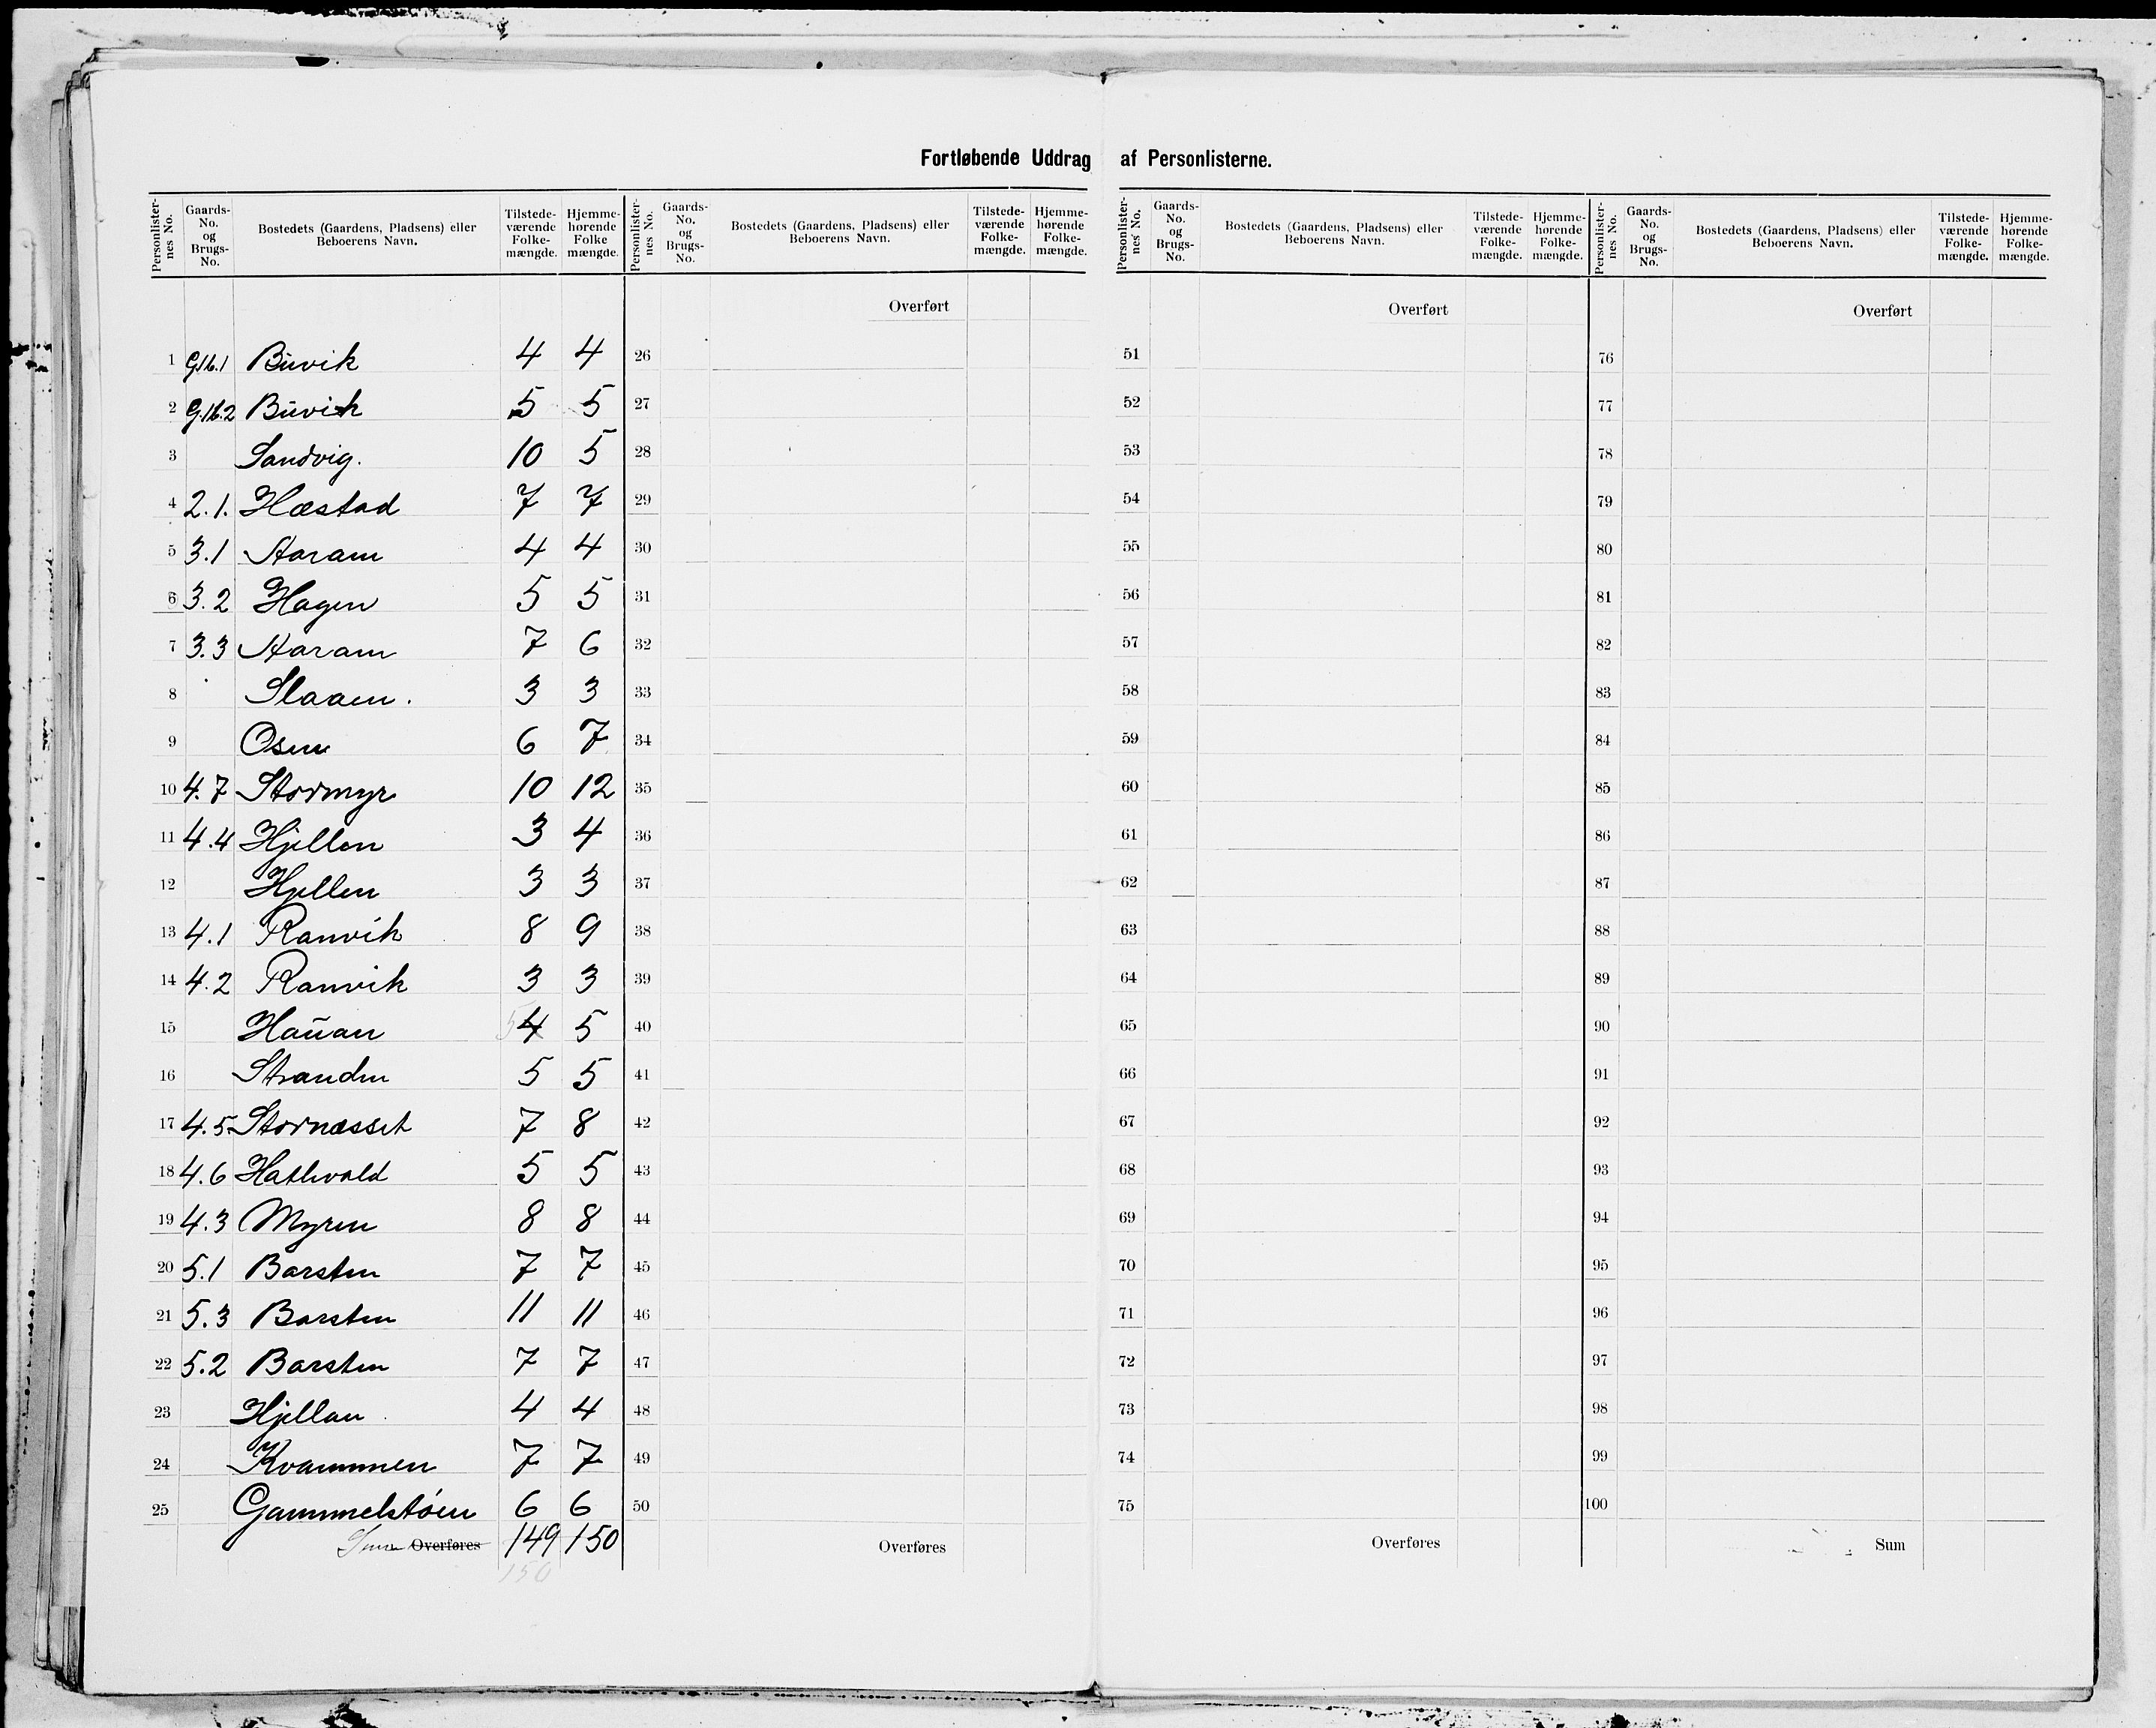 Fortløbende Uddrag af Personlisterne.
Personlister-nes No. Gaards-No. og Brugs-No. Bostedets (Gaardens, Pladsens) eller Beboerens Navn. Tilstede-værende Folke-mængde. Hjemme-hørende Folke mængde.
1 G.1b.1 Buvik 4 4
2 G.1b.2 Buvik 5 5
3 Sandvig. 10 5
4 2.1. Hæstad 7 7
5 3.1 Aaram 4 4
6 3.2 Hagen 5 5
7 3.3 Aaram 7 6
8 Slaaen. 3 3
9 Osen 6 7
10 4.7 Stormyr 10 12
11 4.4 Hjellen 3 4
12 Hjellen 3 3
13 4.1 Ranvik 8 9
14 4.2 Ranvik 3 3
15 Hauan 5 4 5
16 Stranden 5 5
17 4.5 Stornæsset 7 8
18 4.6 Hatlevold 5 5
19 4.3 Myren 8 8
20 5.1 Barsten 7 7
21 5.3 Barsten 11 11
22 5.2 Barsten 7 7
23 Hjellan 4 4
24 Kvammen 7 7
25 Gammelstøen 6 6
Sum Overføres 149 150
150
Personlister-nes No. Gaards-No. og Brugs-No. Bostedets (Gaardens, Pladsens) eller Beboerens Navn. Tilstede-værende Folke-mængde. Hjemme-hørende Folke-mængde.
Overført
26
27
28
29
30
31
32
33
34
35
36
37
38
39
40
41
42
43
44
45
46
47
48
49
50
Overføres
Personlister-nes No. Gaards-No. og Brugs-No. Bostedets (Gaardens, Pladsens) eller Beboerens Navn. Tilstede-værende Folke-mængde. Hjemme-hørende Folke-mængde.
Overført
51
52
53
54
55
56
57
58
59
60
61
62
63
64
65
66
67
68
69
70
71
72
73
74
75
Overføres
Personlister-nes No. Gaards-No. og Brugs-No. Bostedets (Gaardens, Pladsens) eller Beboerens Navn. Tilstede-værende Folke-mængde. Hjemme-hørende Folke-mængde.
Overført
76
77
78
79
80
81
82
83
84
85
86
87
88
89
90
91
92
93
94
95
96
97
98
99
100
Sum